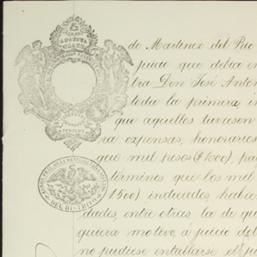 de Martinez del Rio
juicio que debia en
tra Don José Anton
toda la primera in
que aquellos tuviesen
ra expensas, honorarios
que mil pesos ($1000), pa
términos que los mil
1500) indicados, habia
dades, entre otras, la de qu
quiera motivo á juicio del
no pudiese entablarse el ju
DEL DISTRITO